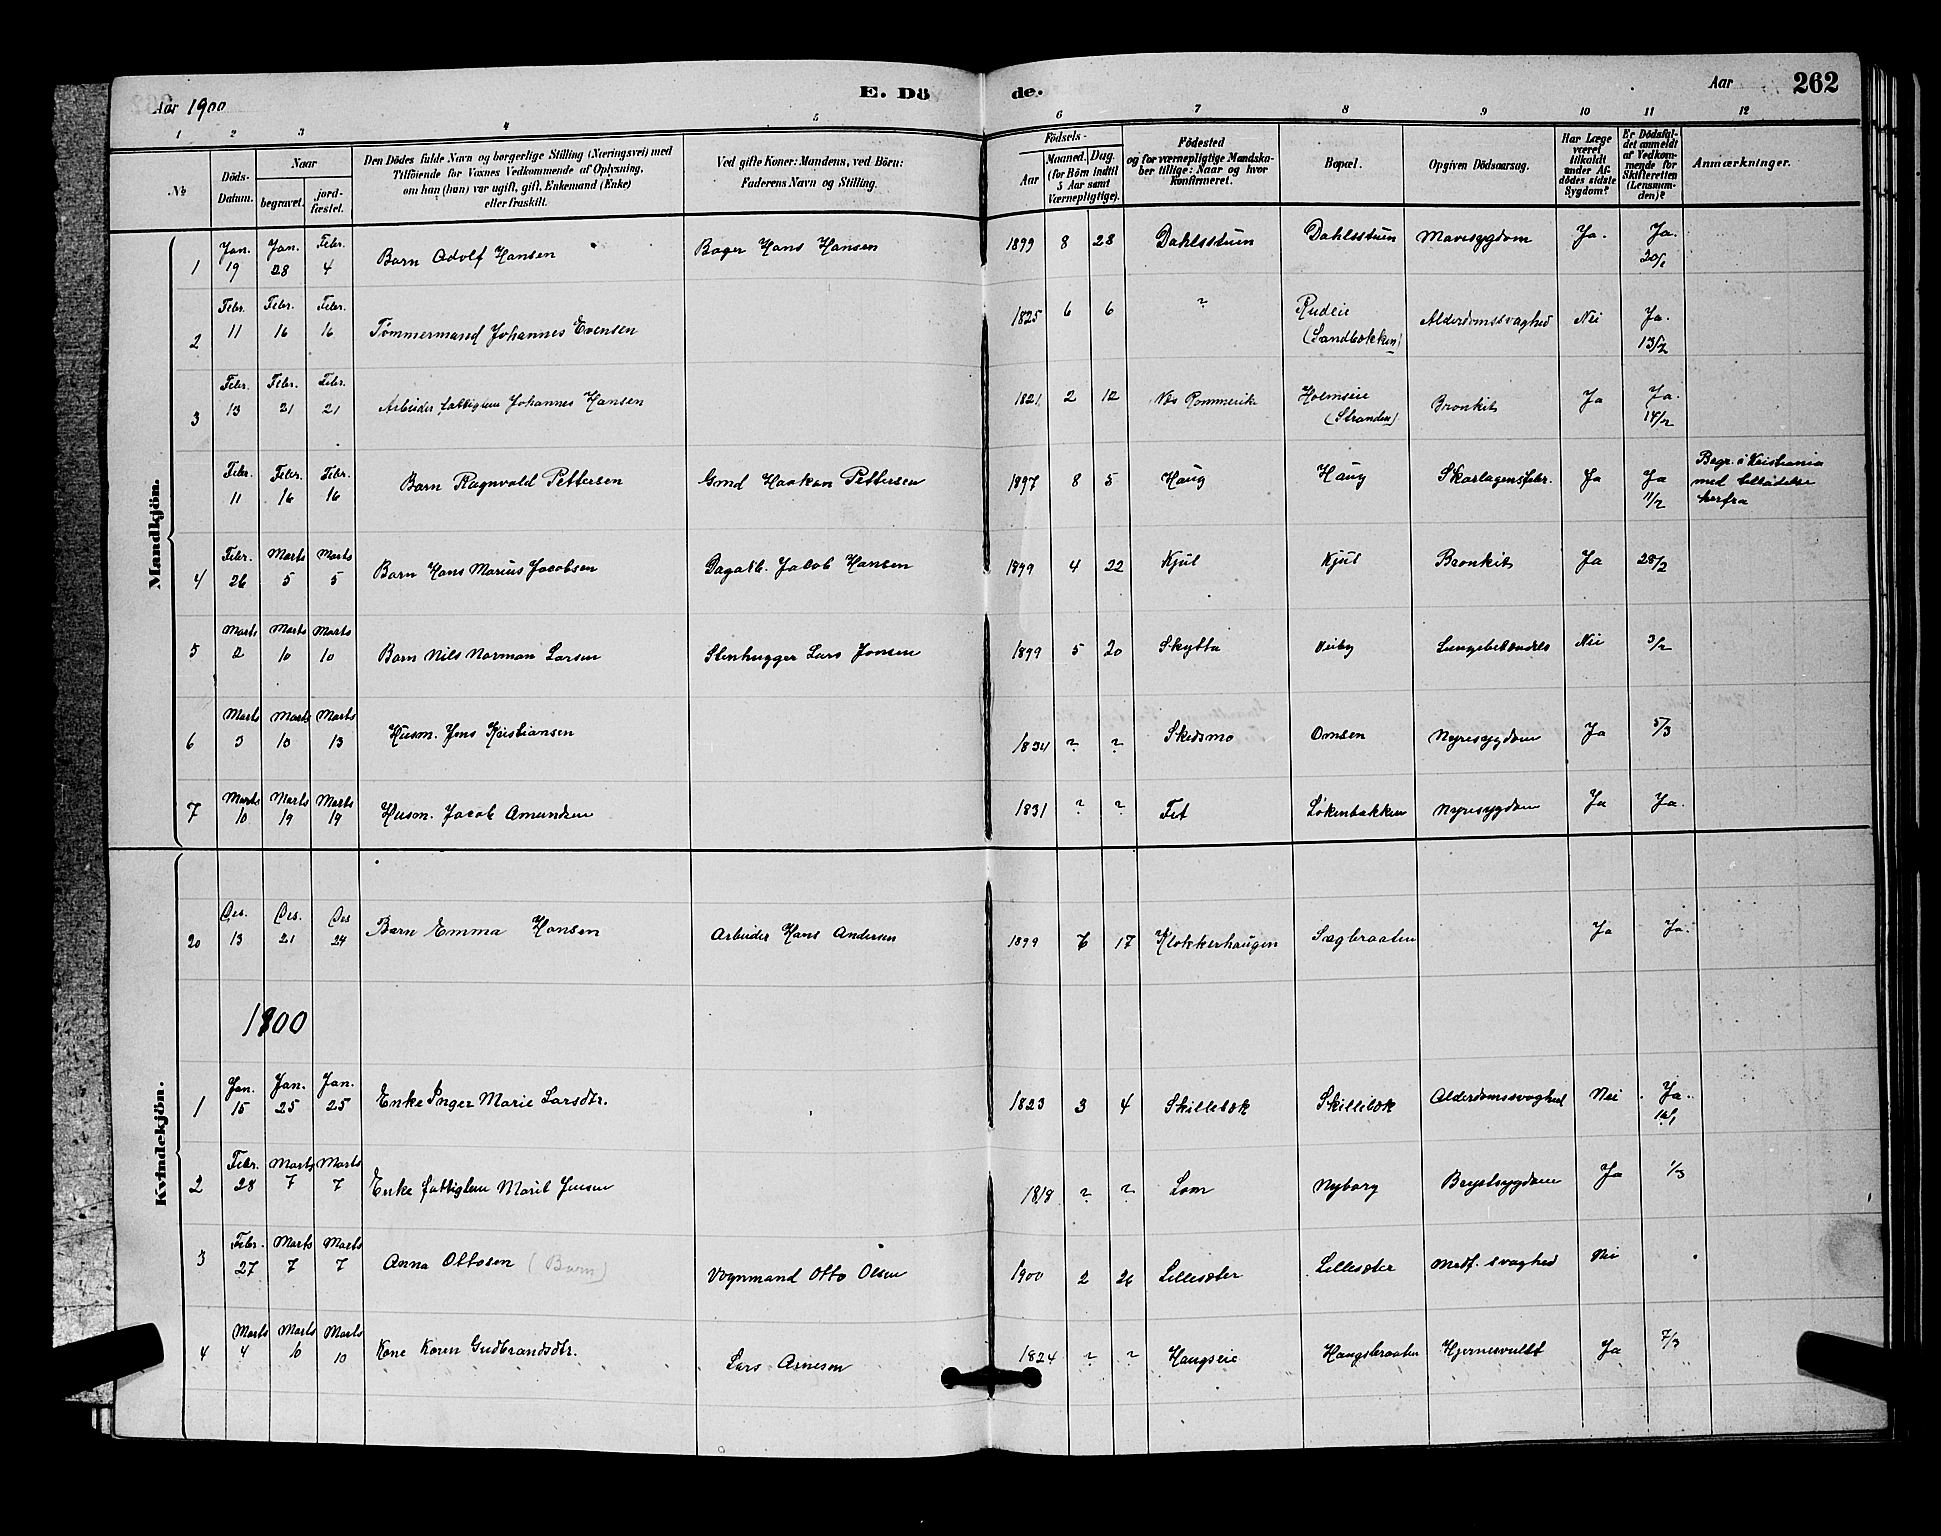 Aar 1900
E. Dö
de.
Aar
262
1 2 3 4 5 6 7 8 9 10 11 12
No
Döds-Datum.
Naar
begravet.
jord-fæstet.
Den Dödes fulde Navn og borgerlige Stilling (Næringsvei) med
Tilföiende for Voxnes Vedkommende af Oplysning,
om han (hun) var ugift, gift, Enkemand (Enke)
eller fraskilt.
Ved gifte Koner: Mandens, ved Börn:
Faderens Navn og Stilling.
Födsels-
Aar
Maaned. Dag.
(for Börn indtil
5 Aar samt
Værnepligtige).
Födested
og for værnepligtige Mandska-
ber tillige: Naar og hvor
Konfirmeret.
Bopæl.
Opgiven Dödsaarsag.
Har Læge
været
tilkaldt
under Af-
dödes sidste
Sygdom?
Er Dödsfal-
det anmeldt
af Vedkom-
mende for
Skifteretten
(Lensman-
den)?
Anmærkninger.
Mandkjön.
1 Jan. 19 Jan. 28 Febr. 4 Barn Adolf Hansen Bager Hans Hansen 1899 8 28 Dahlsstuen Dahlsstuen Mavesygdom Ja. Ja. 20/1
2 Febr. 11 Febr. 16 Febr. 16 Tømmermand Johannes Evensen 1825 6 6 ? Rudeie (Sandbækken) Alderdomssvaghed Nei Ja. 13/2
3 Febr. 13 Febr. 21 Febr. 21 Arbeider fattiglem Johannes Hansen 1821 2 12 Nes Rommerike Holmseie (Stranden) Bronkit Ja Ja. 14/2
Febr. 11 Febr. 16 Febr. 16 Barn Ragnvald Pettersen Gmd Haakon Pettersen 1897 8 5 Haug Haug Skarlagensfebr. Ja Ja 11/2 Begr. i Kristiania
med tilladelse
herfra
4 Febr. 26 Marts 5 Marts 5 Barn Hans Marius Jacobsen Dagarb. Jacob Hansen 1899 4 22 Kjul Kjul Bronkit Ja 28/2
5 Marts 2 Marts 10 Marts 10 Barn Nils Norman Larsen Stenhugger Lars Jonsen 1899 5 20 Skytta Veiby Lungebetændels Nei 3/2
6 Marts 3 Marts 10 Marts 13 Husm. Jens Kristiansen 1834 ? ? Skedsmo Omsen Nyresygdom Ja 5/3
7 Marts 10 Marts 19 Marts 19 Husm. Jacob Amundsen 1831 ? ? Fet Løkenbakken Nyresygdom Ja Ja.
Kvindekjön.
20 Des. 13 Des. 21 Des 24 Barn Emma Hansen Arbeider Hans Andersen 1899 7 17 Klokkerhaugen Sagbraaten Ja Ja.
1900
1 Jan. 15 Jan. 25 Jan. 25 Enke Inger Marie Larsdtr. 1823 3 4 Skillebæk Skillebæk Alderdomssvaghed Nei Ja. 16/1
2 Febr. 28 Marts 7 Marts 7 Enke fattiglem Marit Jensen 1818 ? ? Lom Nyborg Brystsygdom Ja 1/3
3 Febr. 27 Marts 7 Marts 7 Anna Ottosen (Barn) Vognmand Otto Olsen 1900 2 26 Lillesæter Lillesæter Medf. svaghed Nei
4 Marts 4 Marts 10 Marts 10 Kone Karen Gudbrandsdtr. Lars Arnesen 1824 ? ? Haugseie Haugsbraaten Hjernesvulst Ja 7/3